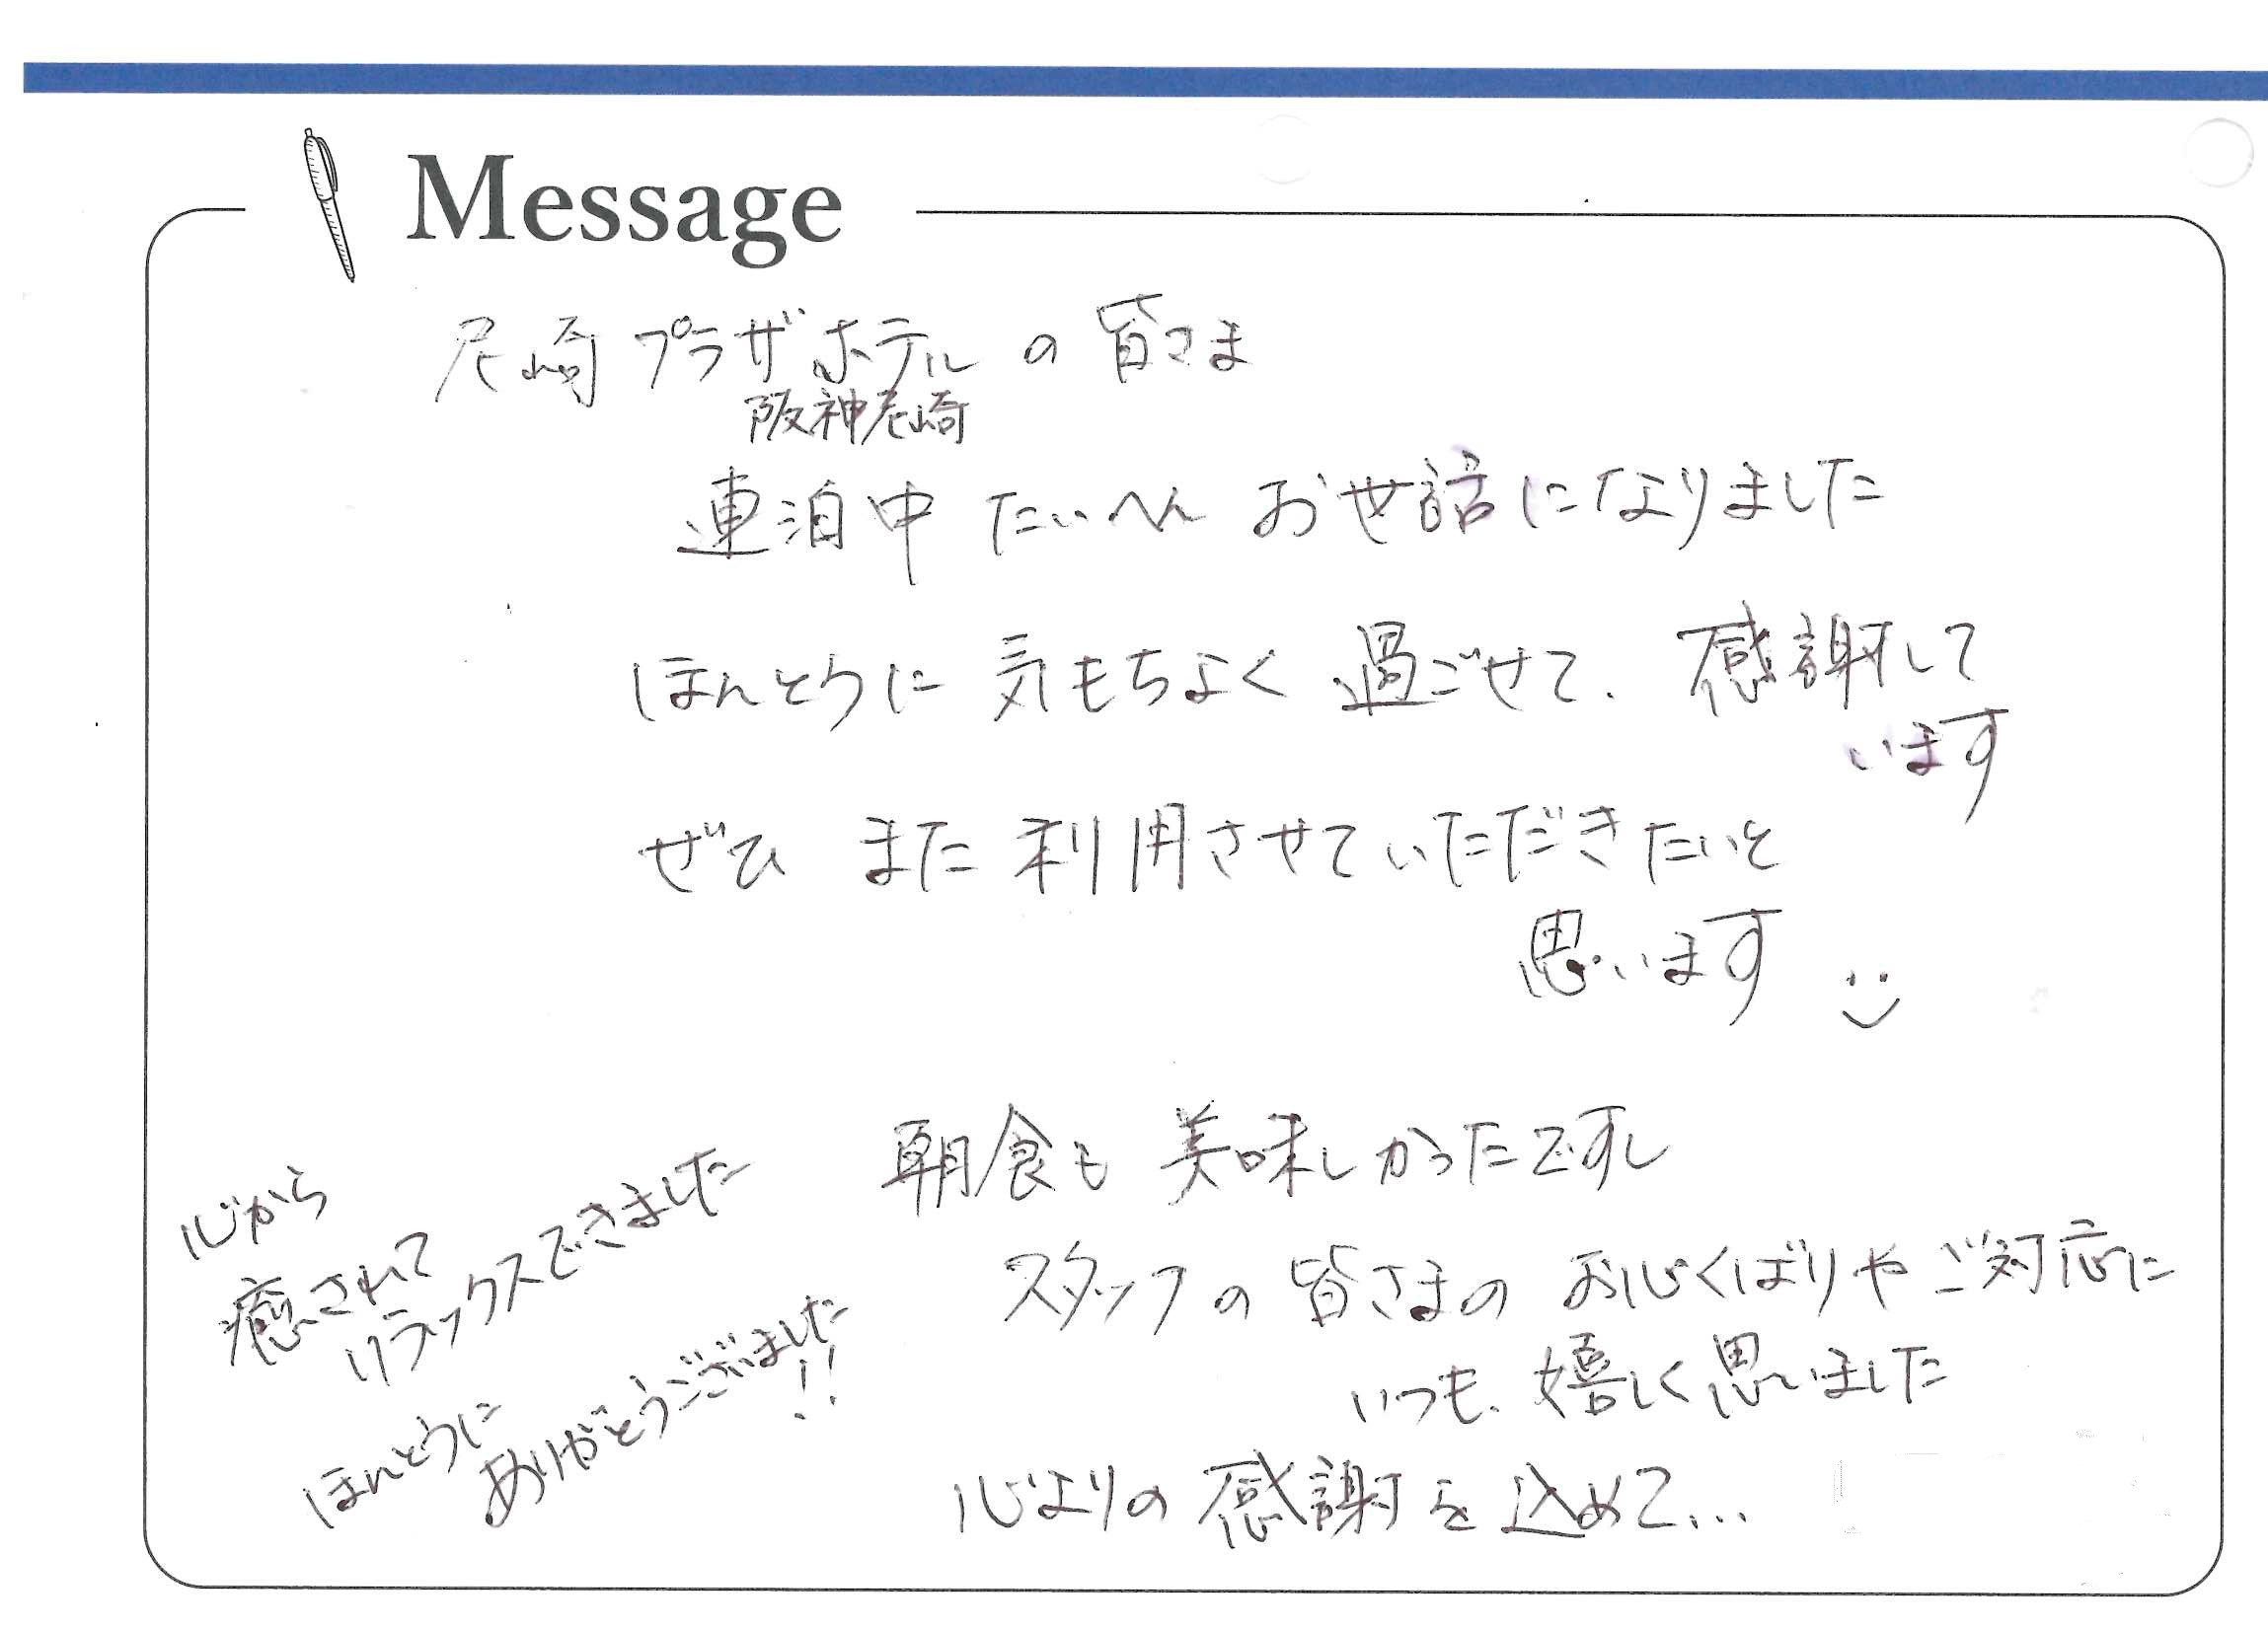 Message
尼崎プラザホテルの皆さま
阪神尼崎
連泊中 たいへん お世話になりました
ほんとうに 気もちよく 過ごせて、感謝して
います
ぜひ また 利用させていただきたいと
思います
朝食も 美味しかったですし
スタッフの 皆さまの お心くばりや ご対応に
いつも、嬉しく思いました
心よりの 感謝を込めて…
心から
癒されて
リラックスできました
ほんとうに
ありがとうございました
!!